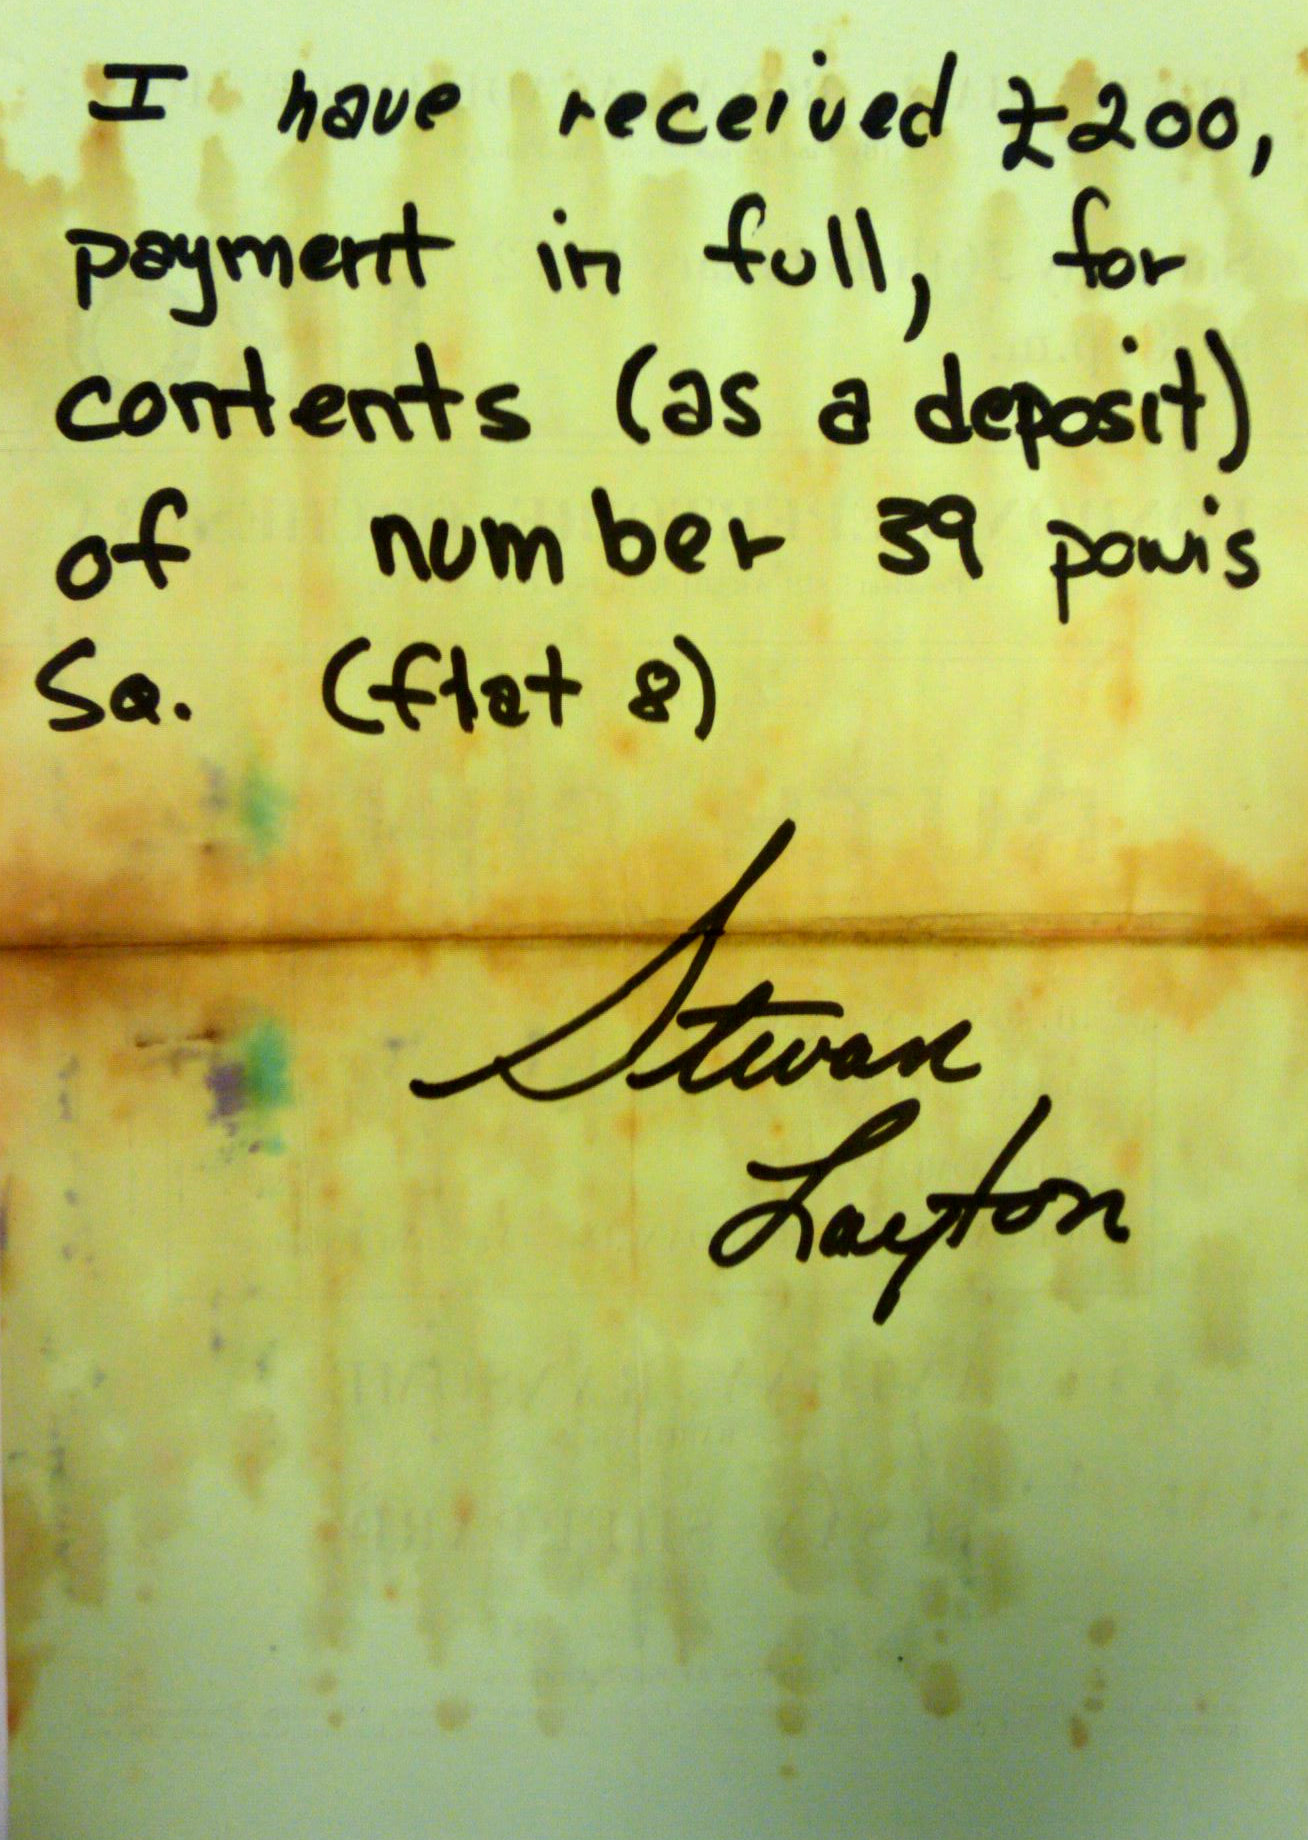 I have received £200,
payment in full, for
contents (as a deposit)
of number 39 powis
Sq. (flat 8)
Stewan
Layton